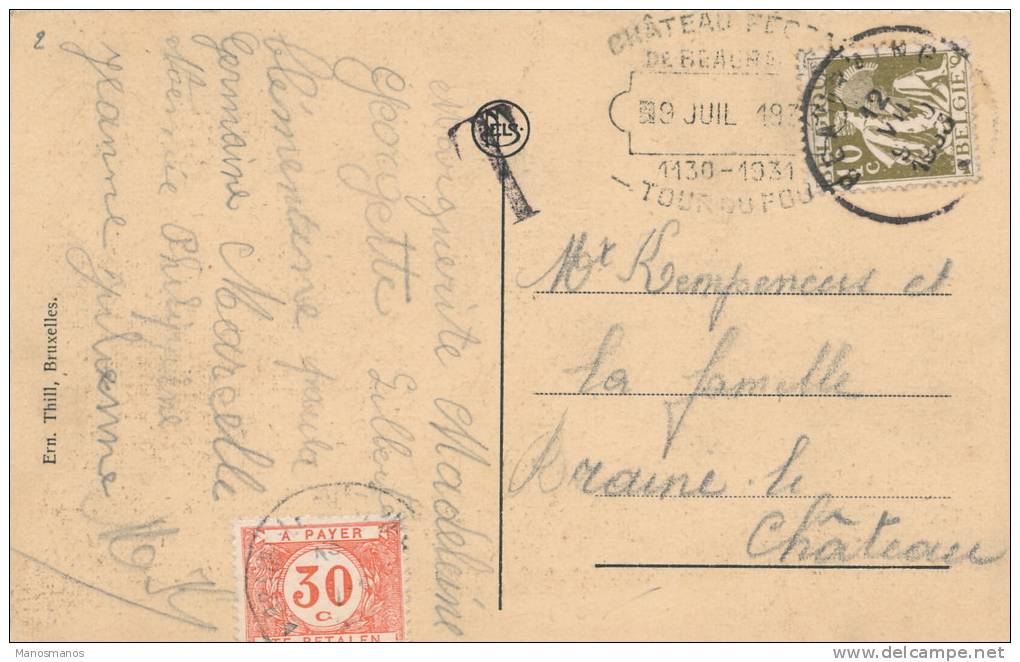 2
Marguerite Madeleine
Georgette Gilberte
Clémentine paula
Germaine Marcelle
Philippine
Jeanne
Ern. Thill, Bruxelles.
T
NELS
CHÂTEAU
DE BEAURA
9 JUIL 193
1130-1931
TOUR DU FOU
12
BELGIE
10
c
Mr Kempeneers et
la famille
Braine le
Château
A PAYER
30
C
TE BETALEN
Manosmanos
delcampe.net